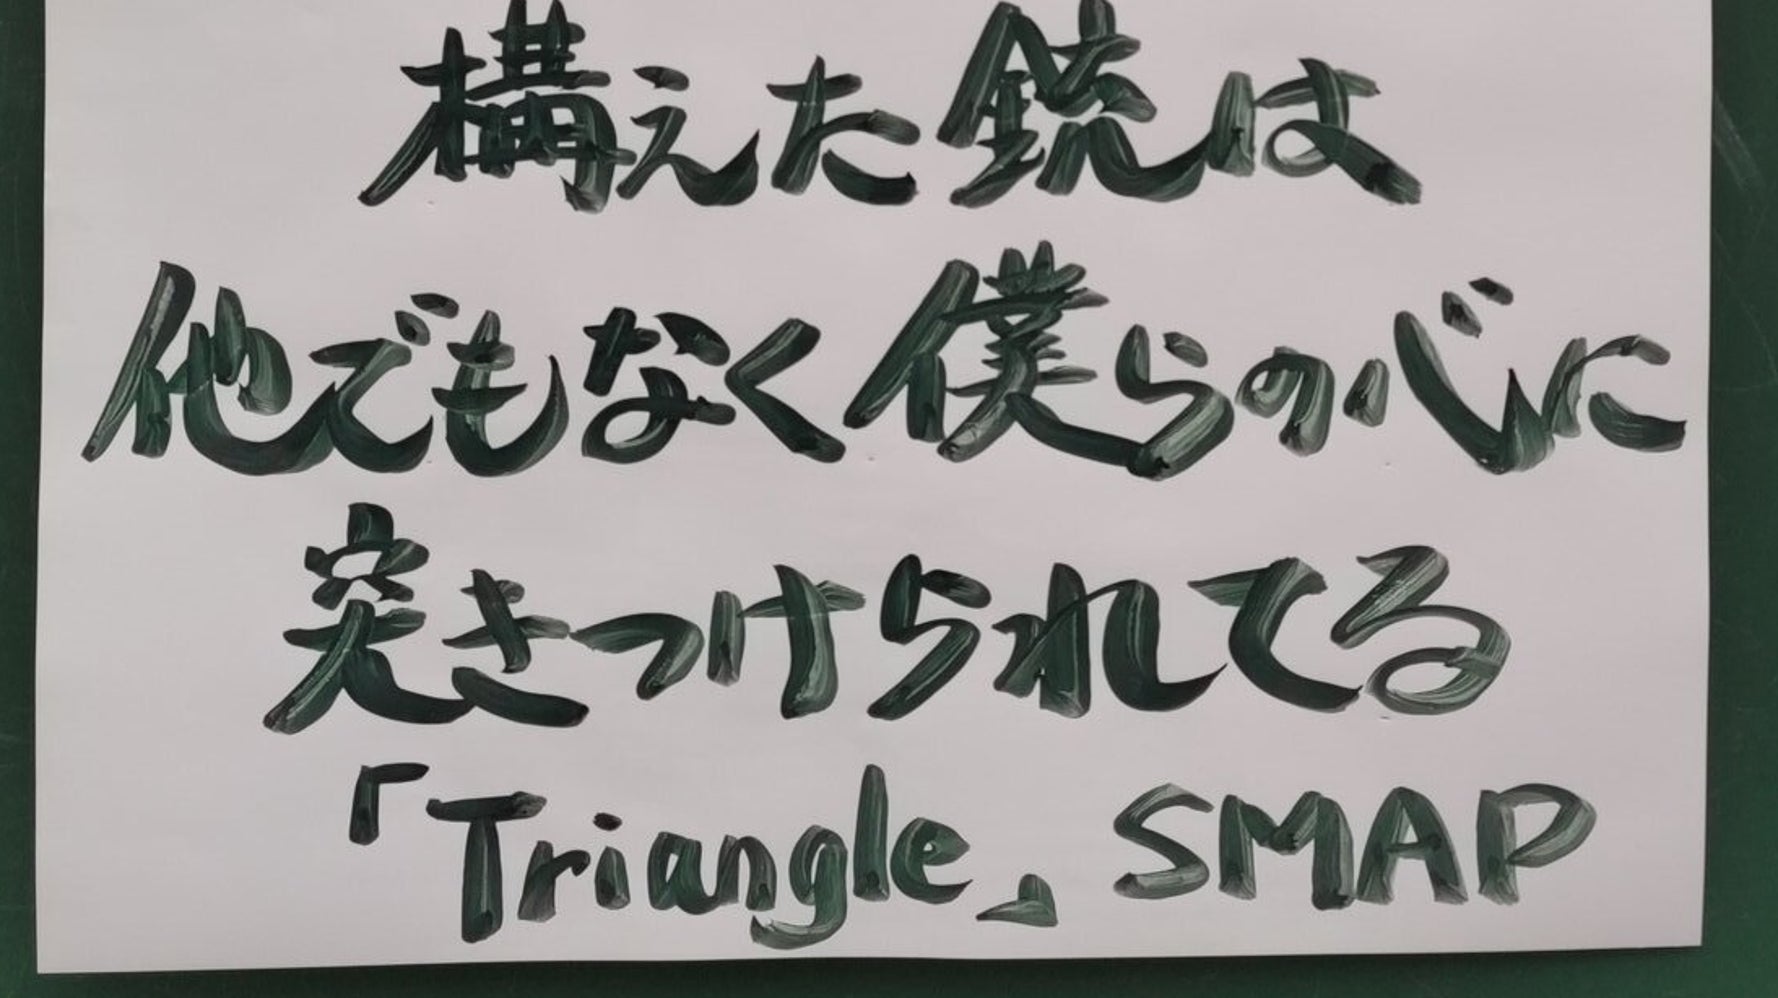 構えた銃は
他でもなく僕らの心に
突きつけられてる
「Triangle」 SMAP